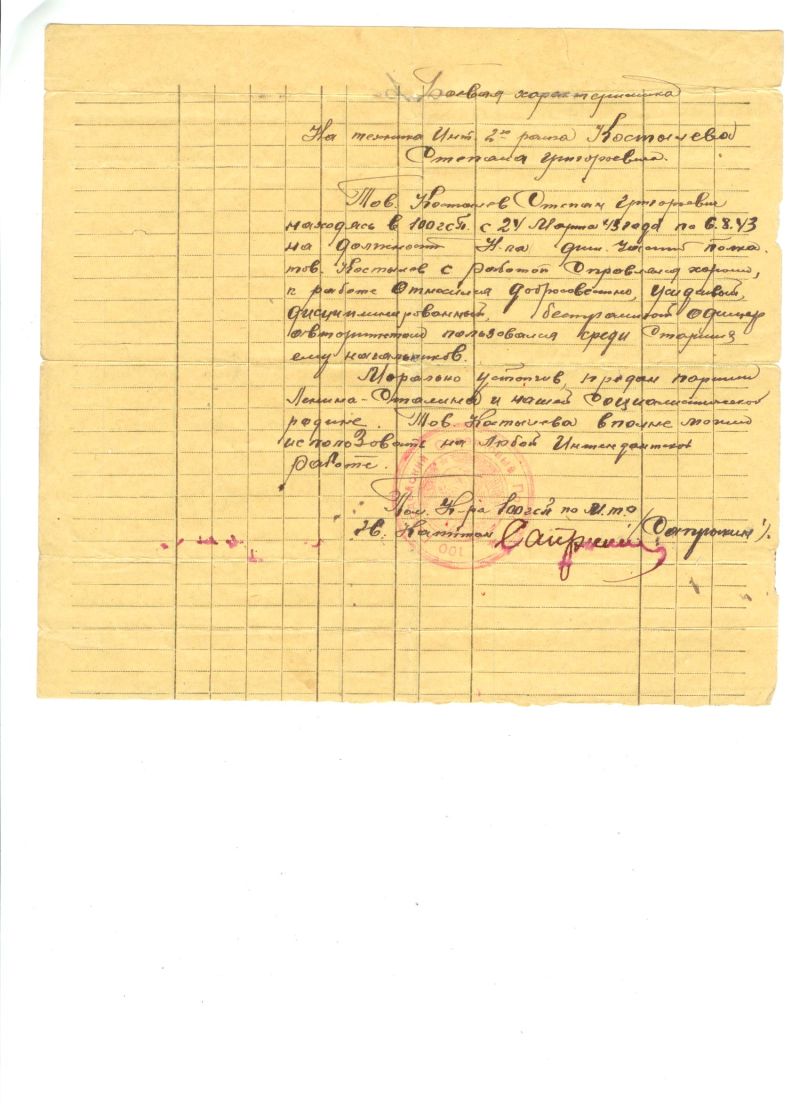 Боевая характеристика
На техника Инт. 2го ранга Костылева
Степана Григорьевича.
Тов. Костылев Степан Григорьевич
находясь в 100гсп. с 24 Марта 43 года по 6.8.43
на должност Н-ка фин. части полка
тов. Костылев с работой справлялся хорошо,
к работе относился добросовестно, усидчивый,
дисциплинированный, бестрашной офицер
авторитетом пользовался среди Старших
ему начальников.
Морально устойчив, предан партии
Ленина-Сталина и нашей Социалистической
родине. Тов. Костылева вполне можно
использовать на любой Интендантской
работе.
Пом. К-ра 100гсп по М.т.о
Гв. Капитан
100